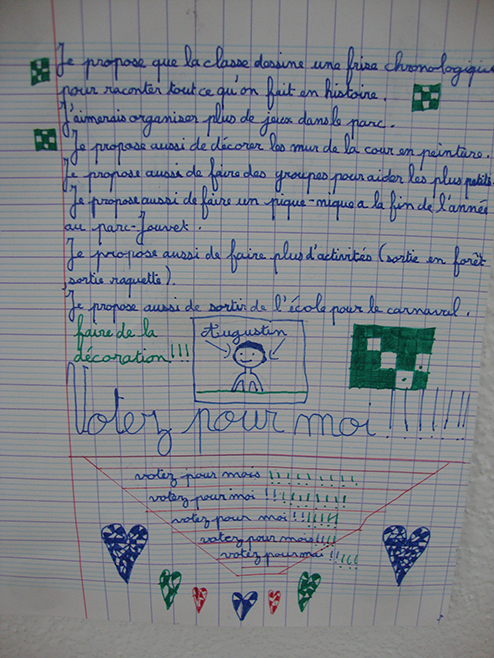 Je propose que la classe dessine une frise chronologique
pour raconter tout ce qu'on fait en histoire.
J'aimerais organiser plus de jeux dans le parc.
Je propose aussi de décorer les mur de la cour en peinture.
Je propose aussi de faire des groupes pour aider les plus petits.
Je propose aussi de faire un pique-nique a la fin de l'année
au parc-Jouvet.
Je propose aussi de faire plus d'activités (sortie en forêt,
sortie raquette).
Je propose aussi de sortir de l'école pour le carnaval.
faire de la
décoration!!!
Augustin
Votez pour moi !!!!!!!
votez pour mois !!!!!!!!!
votez pour moi !!!!!!!!
votez pour moi !!!!!!
votez pour mois!!!!
votez pour moi !!!!!